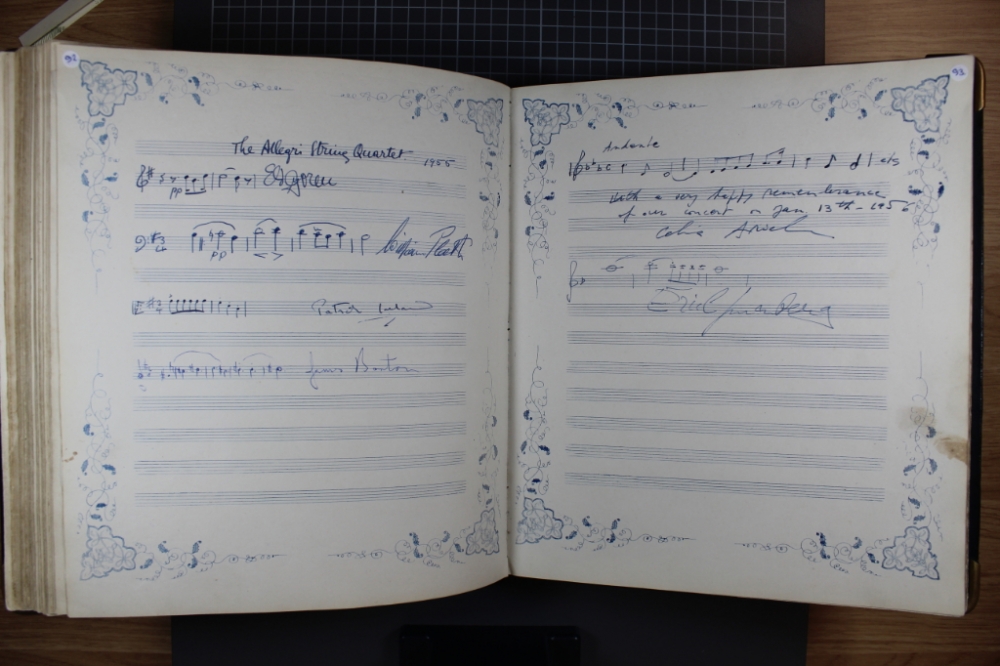 92
The Allegri String Quartet
1955
pp
Eli Goren
pp
William Pleeth
Patrick Ireland
James Barton
93
Andante
etc
with a very happy remembrance
of our concert on Jan 13th - 1956